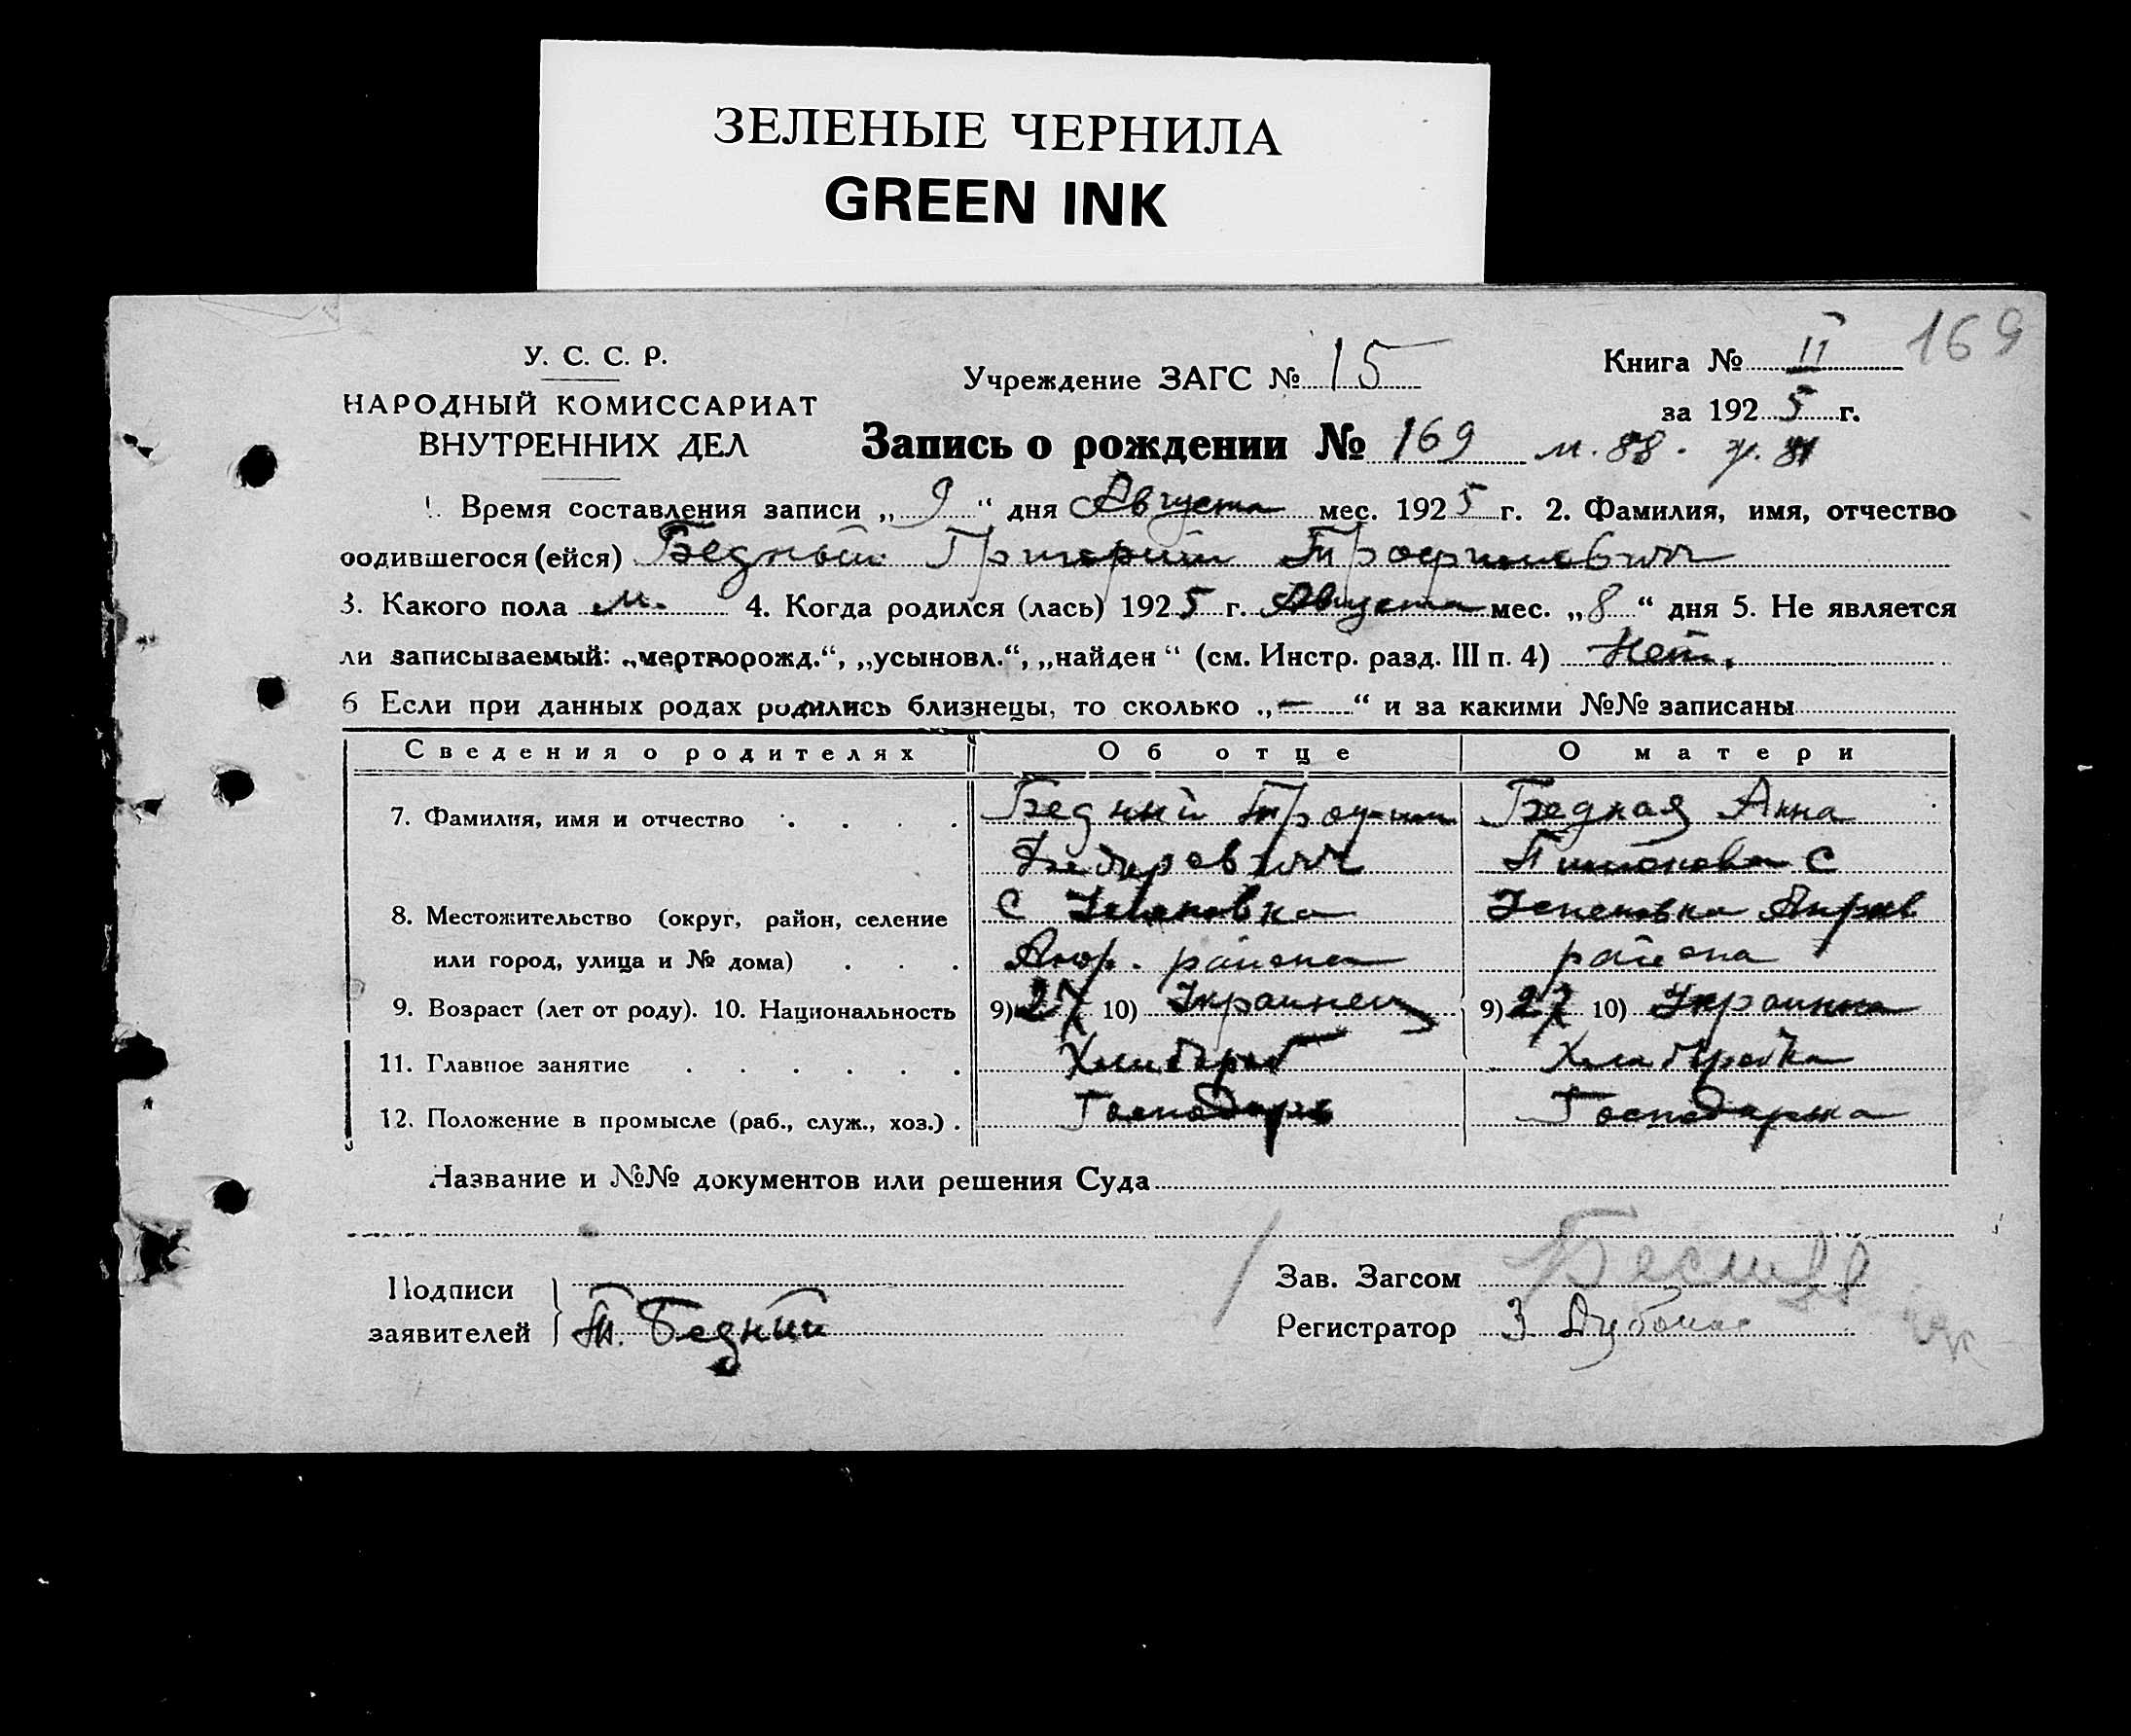 ЗЕЛЕНЫЕ ЧЕРНИЛА
GREEN INK
169
У. С. С. Р.
НАРОДНЫЙ КОМИССАРИАТ
ВНУТРЕННИХ ДЕЛ
Учреждение ЗАГС № 15
Книга № II
за 1925 г.
Запись о рождении № 169 м. 88. ж. 81
1. Время составления записи „9“ дня Августа мес. 1925 г. 2. Фамилия, имя, отчество
родившегося (ейся) Бедный Григорий Трофимович
3. Какого пола м. 4. Когда родился (лась) 1925 г. Августа мес. „8“ дня 5. Не является
ли записываемый: „мертворожд.“, „усыновл.“, „найден“ (см. Инстр. разд. III п. 4) Нет.
6 Если при данных родах родились близнецы, то сколько „—“ и за какими №№ записаны
Сведения о родителях Об отце О матери
7. Фамилия, имя и отчество Бедный Трофим Бедная Анна
С
8. Местожительство (округ, район, селение С Успеновка Успеновка
или город, улица и № дома) района района
9. Возраст (лет от роду). 10. Национальность 9) 27 10) Украинец 9) 27 10) Украинка
11. Главное занятие Хлибороб Хлиборобка
12. Положение в промысле (раб., служ., хоз.) Господарь Господарка
Название и №№ документов или решения Суда
Подписи
заявителей Т. Бедний
Зав. Загсом
Регистратор З